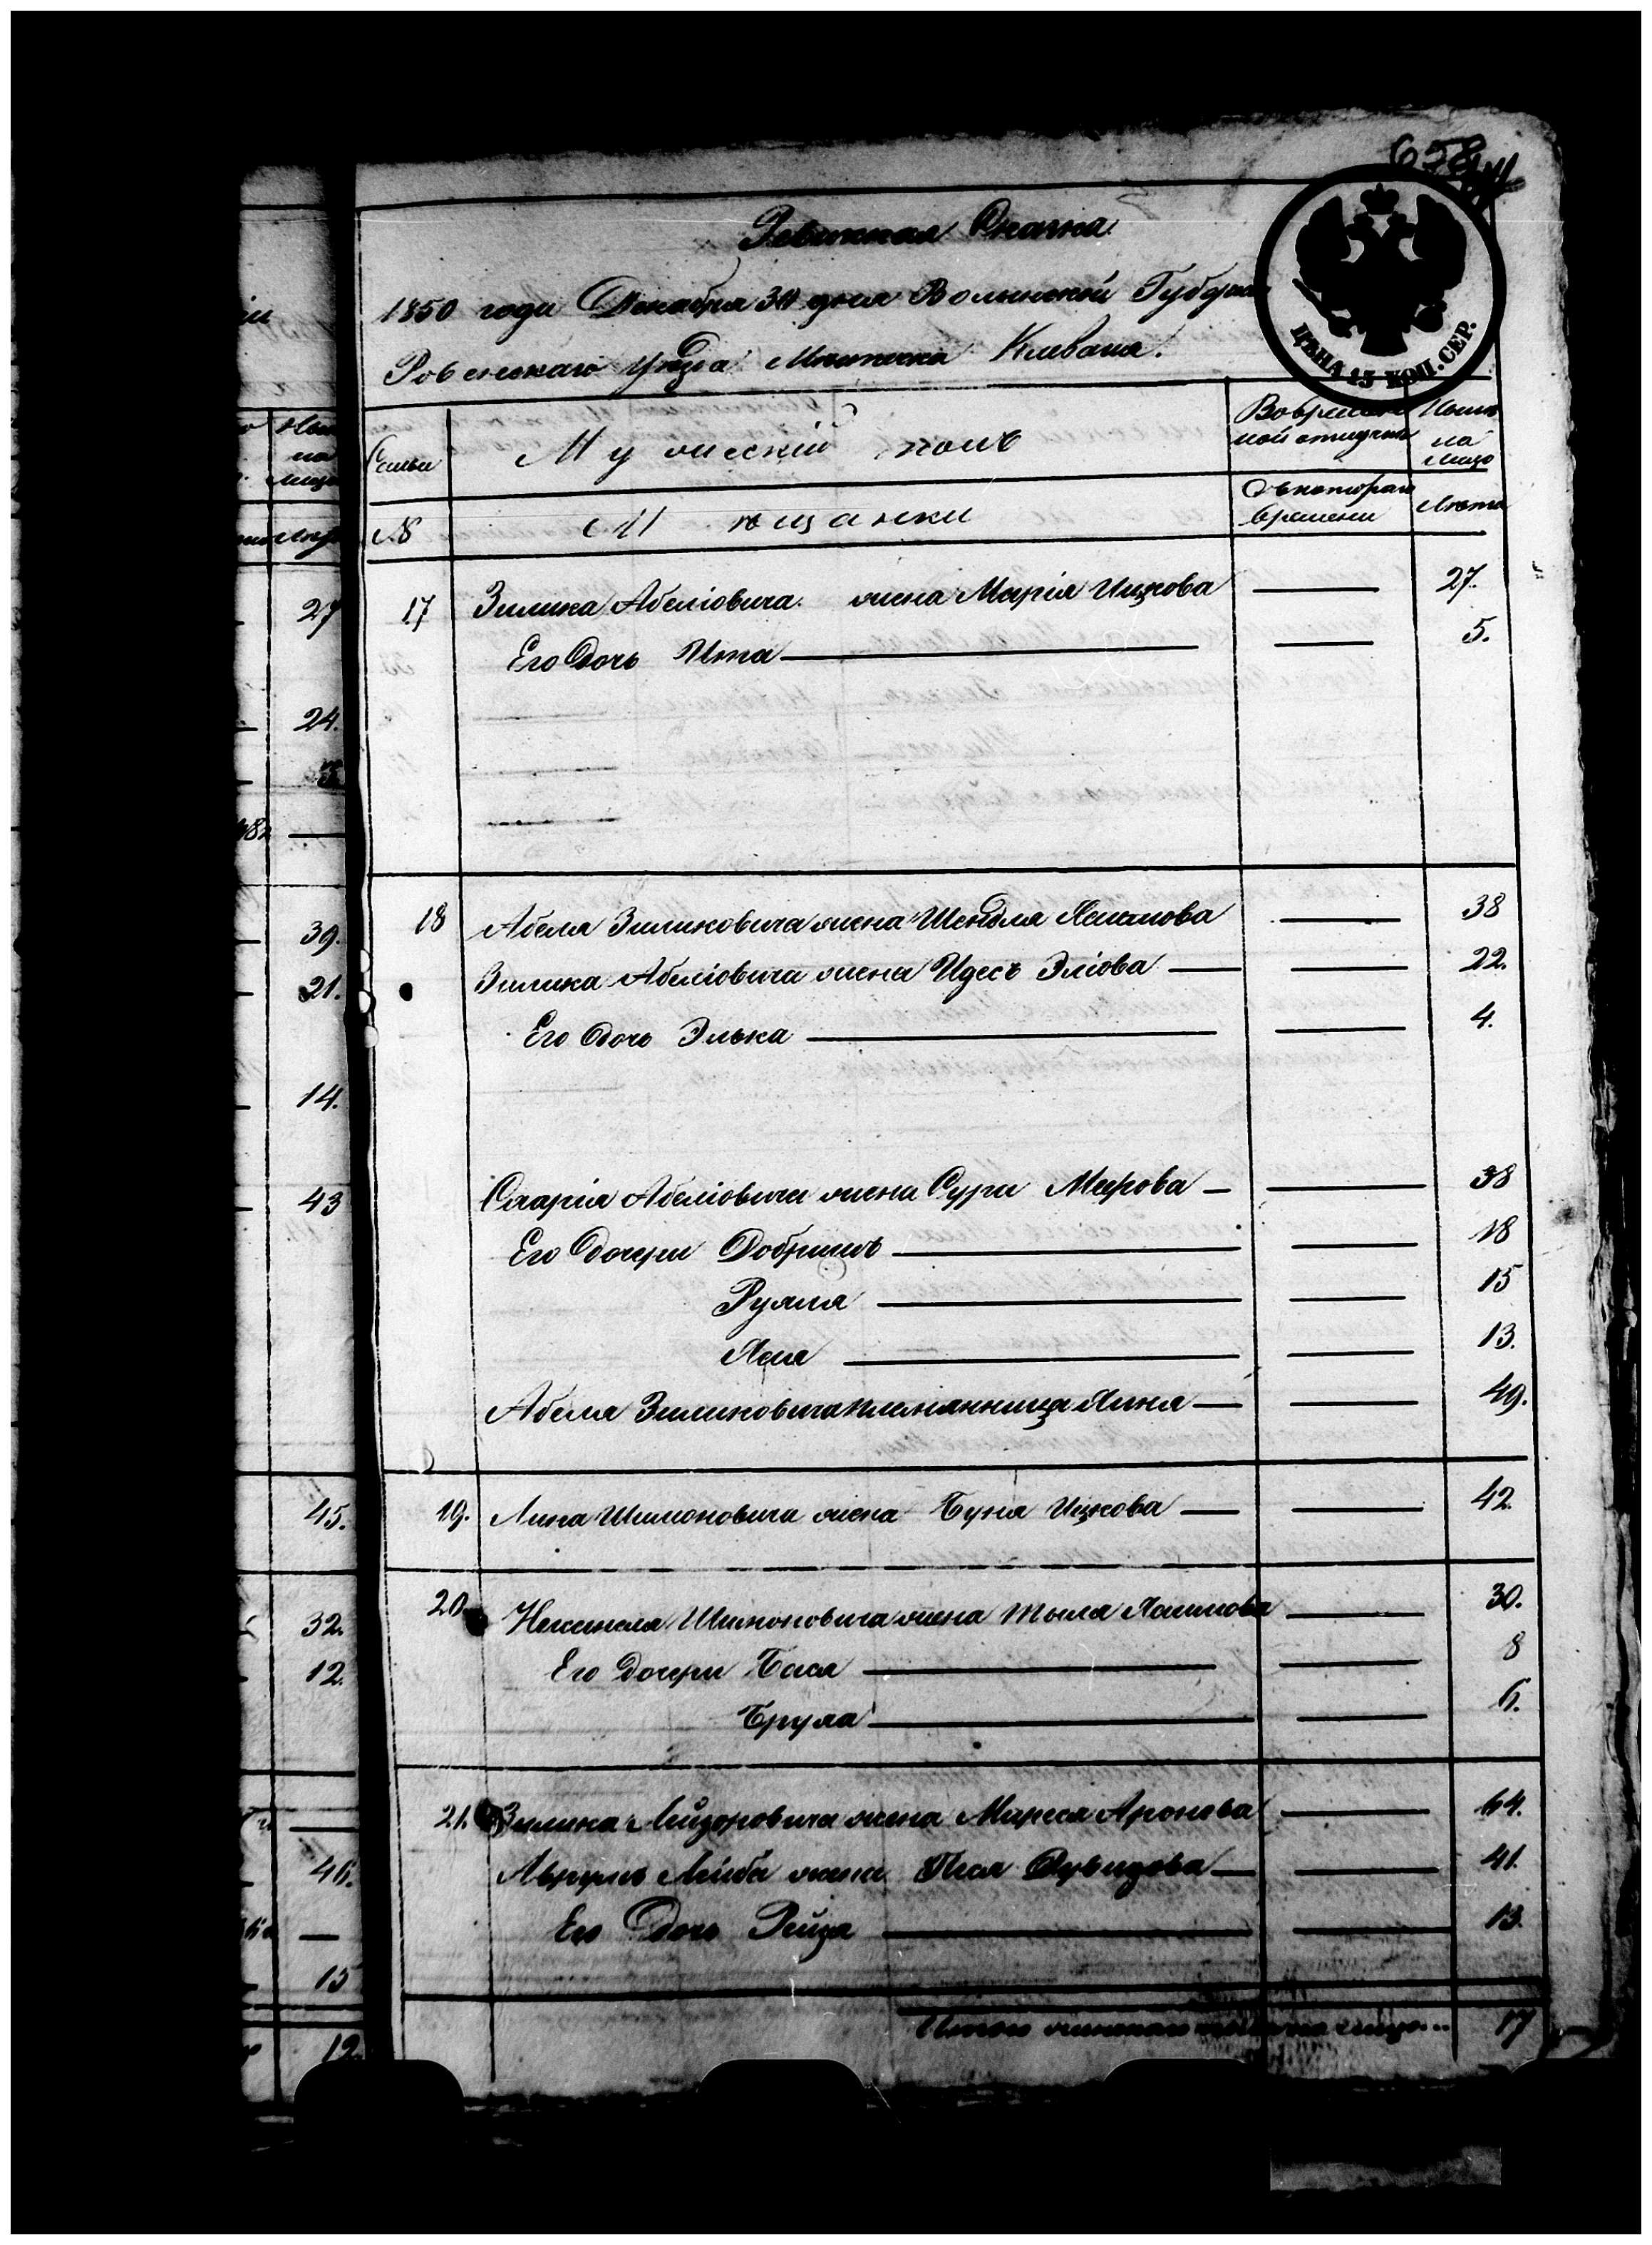 658
Ревизская Сказка
1850 года Декабря 30 дня Волынской Губернiи
ЦѢНА 15 КОП. СЕР.
Ровенскаго Уѣзда Мѣстечка Клеваня.
Семьи
Мужескiй полъ
Во временной отлучкѣ
Нынѣ на лицо
№
Мѣщанки
Съ котораго времени
Лѣта
17 Зилика Абелiовича жена Марiя Ицкова — 27.
Его Дочь Ита — 5.
18 Абеля Зиликовича жена Шендля — 38
Зилика Абелiовича жена Идесъ Элiова — 22.
Его Дочь Элька — 4.
Абелiовича жена Сура Меерова — 38
Его Дочери Добришъ — 18
Рухля — 15
Хая — 13.
Абеля Зиликовича племянница Хиня — 49.
19. Шимоновича жена Буня Ицкова — 42.
20. Шимоновича жена Тыля Хаимова — 30.
Его Дочери Бася — 8
Бруха — 6.
21. Зилика Лейзоровича жена Мирея Аронова — 64.
Лейба жена Песя Давидова — 41.
Его Дочь Рейза — 13.
Итого женскаго пола на лицо... 17
27
24.
39.
21.
14.
43
45.
32.
12.
46.
15